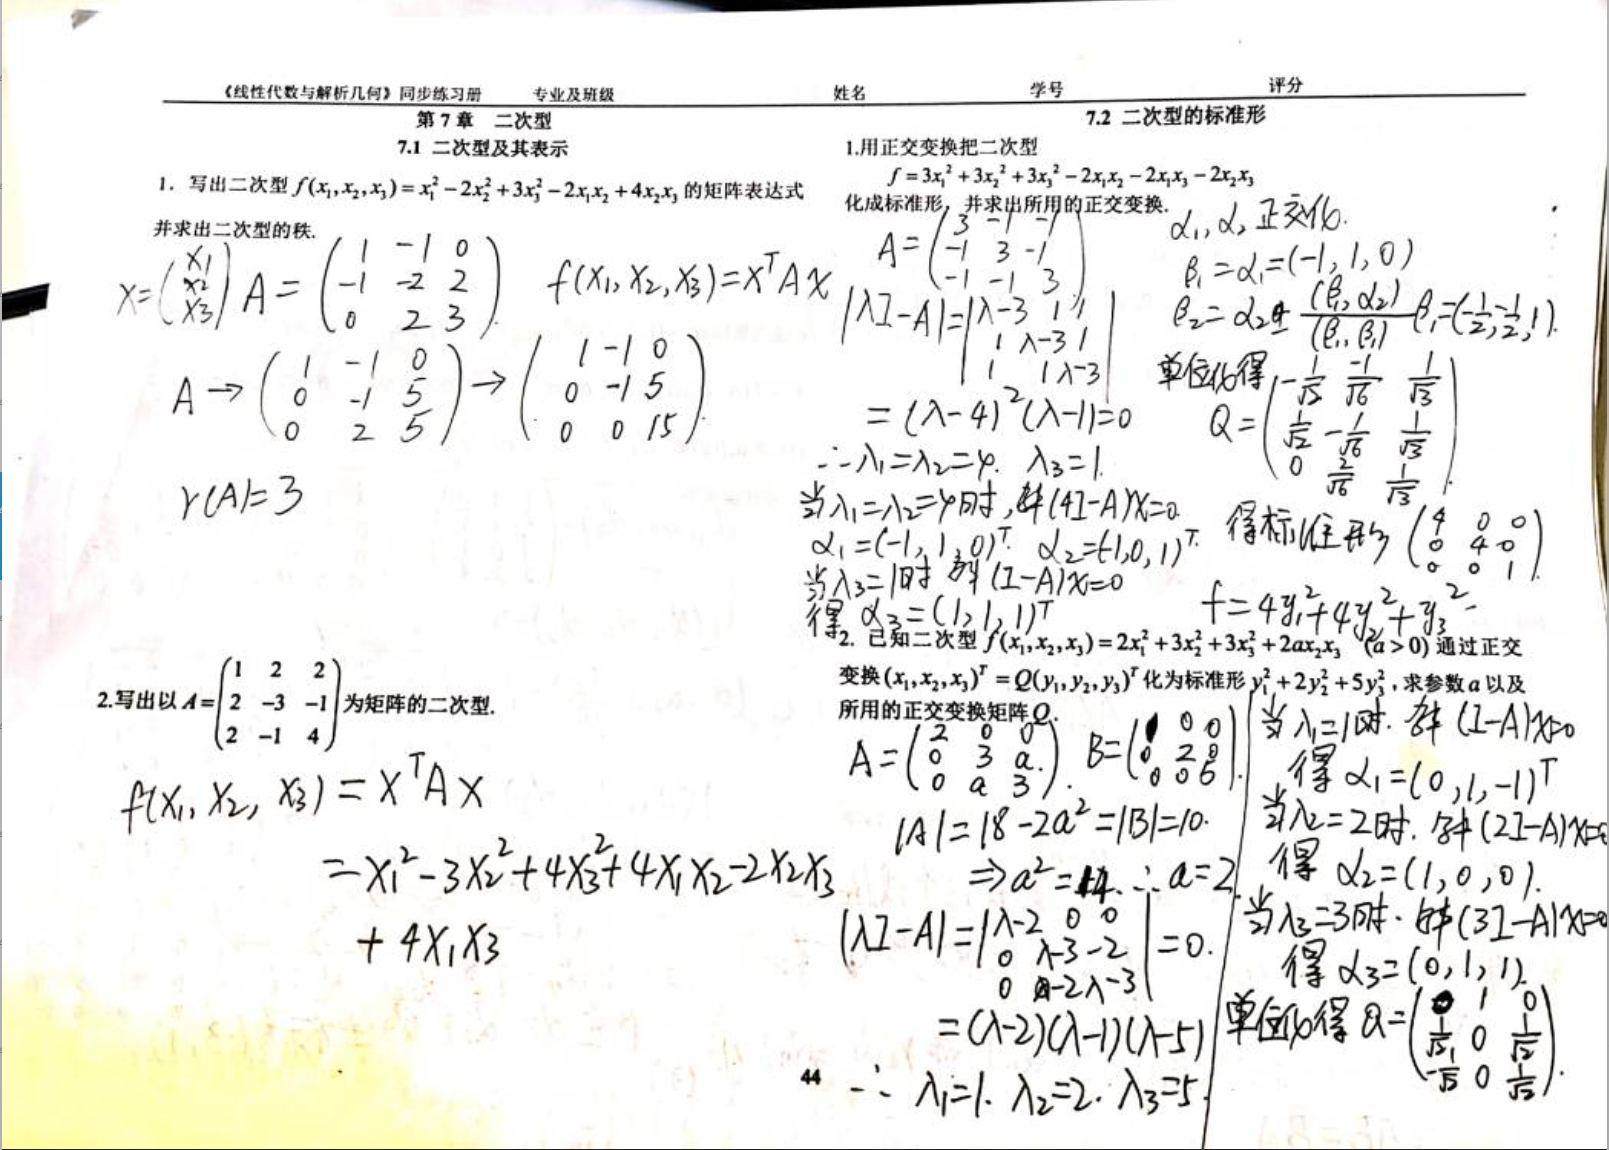 《线性代数与解析几何》同步练习册 专业及班级 姓名 学号 评分
第 7 章 二次型
7.1 二次型及其表示
1. 写出二次型 f(x₁,x₂,x₃)=x₁²−2x₂²+3x₃²−2x₁x₂+4x₂x₃ 的矩阵表达式
并求出二次型的秩.
X=(x1 x2 x3) A=(1 −1 0
−1 −2 2
0 2 3) f(X₁,X₂,X₃)=XᵀAX
A→(1 −1 0
0 −1 5
0 2 5)→(1 −1 0
0 −1 5
0 0 15).
r(A)=3
2.写出以 A=(1 2 2
2 −3 −1
2 −1 4) 为矩阵的二次型.
f(X₁,X₂,X₃)=XᵀAX
=X₁²−3X₂²+4X₃²+4X₁X₂−2X₂X₃
+4X₁X₃
7.2 二次型的标准形
1.用正交变换把二次型
f=3x₁²+3x₂²+3x₃²−2x₁x₂−2x₁x₃−2x₂x₃
化成标准形，并求出所用的正交变换.
A=(3 −1 −1
−1 3 −1
−1 −1 3)
|λI−A|=|λ−3 1 1
1 λ−3 1
1 1 λ−3|
=(λ−4)²(λ−1)=0
∴λ₁=λ₂=4. λ₃=1.
当λ₁=λ₂=4时,解(4I−A)X=0.
α₁=(−1,1,0)ᵀ. α₂=(−1,0,1)ᵀ.
当λ₃=1时 解(I−A)X=0
得 α₃=(1,1,1)ᵀ
α₁,α₂正交化.
β₁=α₁=(−1,1,0)
β₂=α₂ (β₁,α₂)/(β₁,β₁) β₁=(−1/2,−1/2,1).
单位化得
Q=(−1/√2 −1/√6 1/√3
1/√2 −1/√6 1/√3
0 2/√6 1/√3).
得标准形(4 0 0
0 4 0
0 0 1).
f=4y₁²+4y₂²+y₃².
2. 已知二次型 f(x₁,x₂,x₃)=2x₁²+3x₂²+3x₃²+2ax₂x₃ (a>0) 通过正交
变换(x₁,x₂,x₃)ᵀ=Q(y₁,y₂,y₃)ᵀ化为标准形y₁²+2y₂²+5y₃²,求参数a以及
所用的正交变换矩阵Q.
A=(2 0 0
0 3 a
0 a 3). B=(1 0 0
0 2 0
0 0 5).
|A|=18−2a²=|B|=10.
⇒a²=4.∴a=2.
|λI−A|=|λ−2 0 0
0 λ−3 −2
0 −2 λ−3|=0.
=(λ−2)(λ−1)(λ−5)
∴ λ₁=1. λ₂=2. λ₃=5.
当λ₁=1时. 解(I−A)X=0
得 α₁=(0,1,−1)ᵀ
当λ₂=2时. 解(2I−A)X=0
得 α₂=(1,0,0).
当λ₃=3时. 解(3I−A)X=0
得 α₃=(0,1,1).
单位化得 Q=(0 1 0
1/√2 0 1/√2
−1/√2 0 1/√2).
44